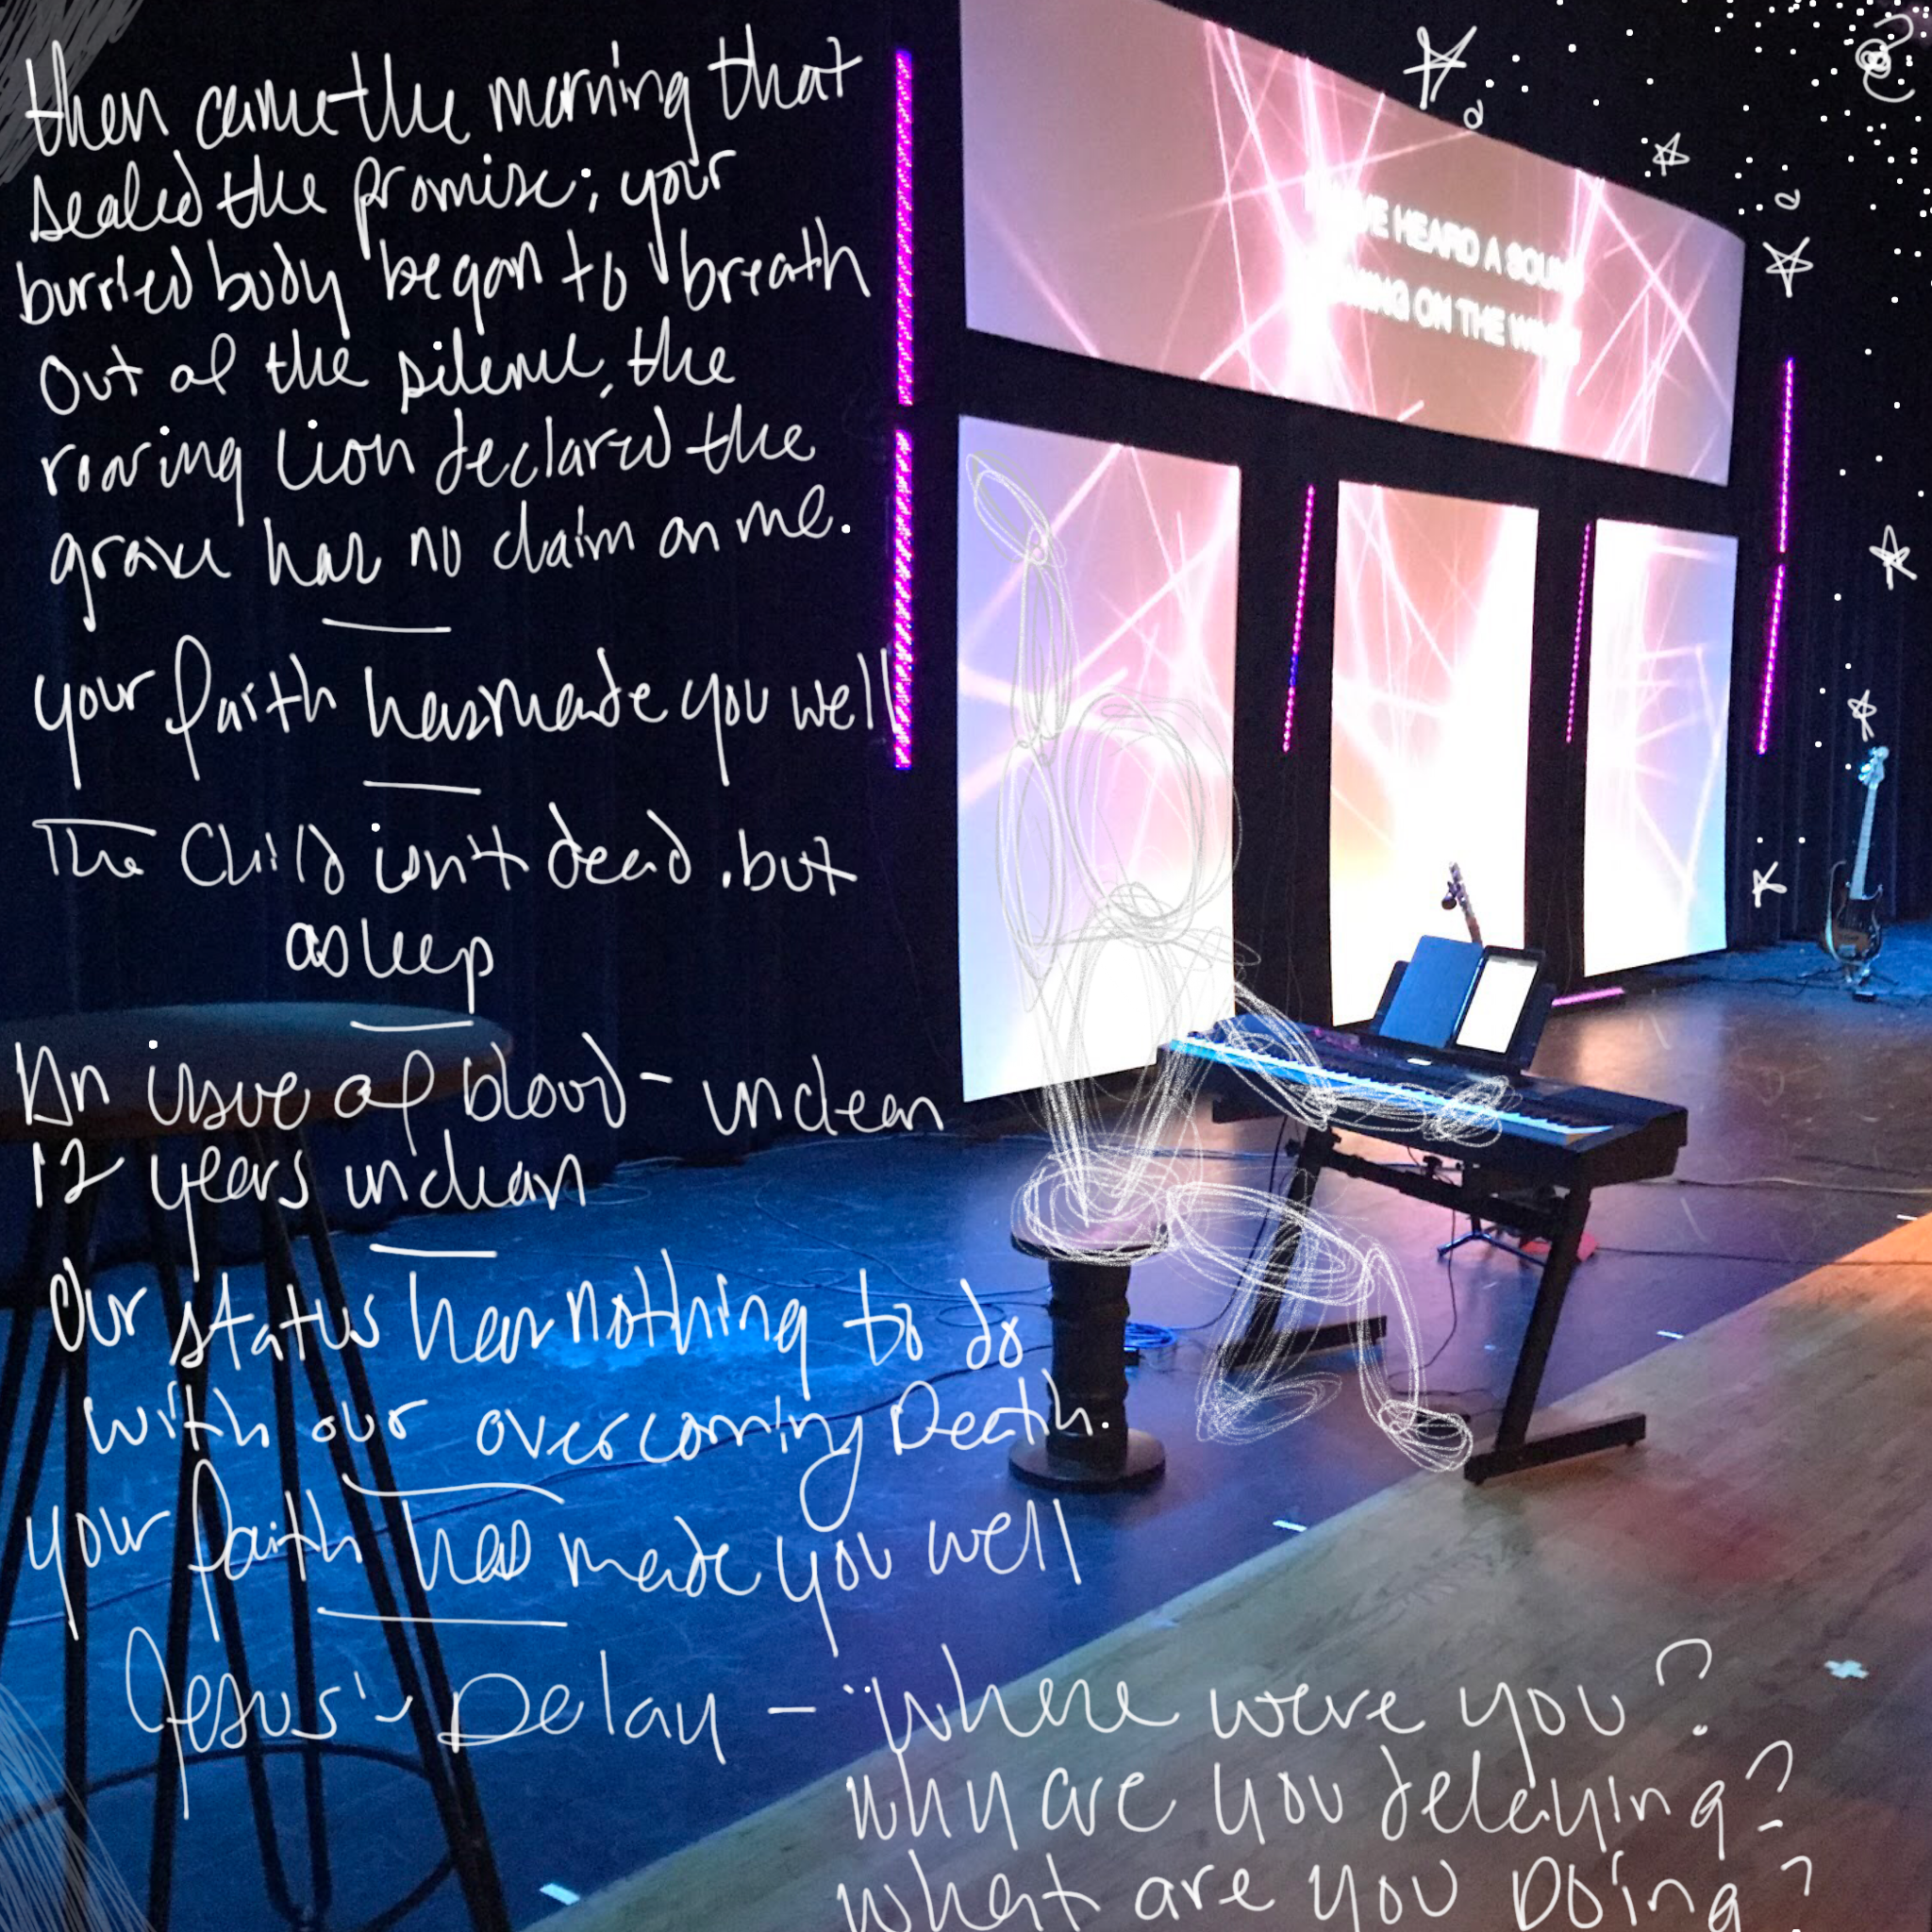 then came the morning that
sealed the promise; your
burried body began to breath
Out of the silence, the
roaring Lion declared the
grave has no claim on me.
your faith has made you well
The Child isn't dead. but
asleep
An issue of blood - unclean
12 years unclean
Our status has nothing to do
with our overcoming Death.
your faith has made you well
Jesus's Delay - "where were you?
why are you delaying?
what are you Doing?
HEARD A
ON THE